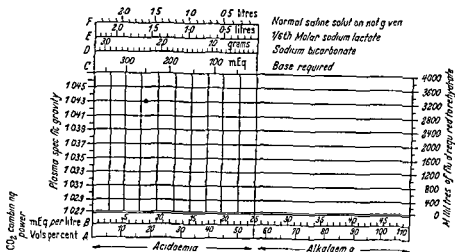 F 2·0 1·5 1·0 0·5 litres Normal saline solut on not g ven
E 2·0 1·5 1·0 0·5 litres 1/6th Molar sodium lactate
D 3·0 2·0 1·0 grams Sodium bicarbonate
C 300 200 100 mEq Base required
Plasma spec fic gravity
1 045
1 043
1 041
1 039
1 037
1 035
1 033
1 031
1 029
1 027
4000
3600
3200
2800
2400
2000
1600
1200
800
400
0
Millilitres of fluid required to rehydrate
CO₂ combining power
mEq per litre B 5 10 15 20 25 30 35 40 45 50
Vols percent A 10 20 30 40 50 60 70 80 90 100 110
Acidaemia Alkalaem a